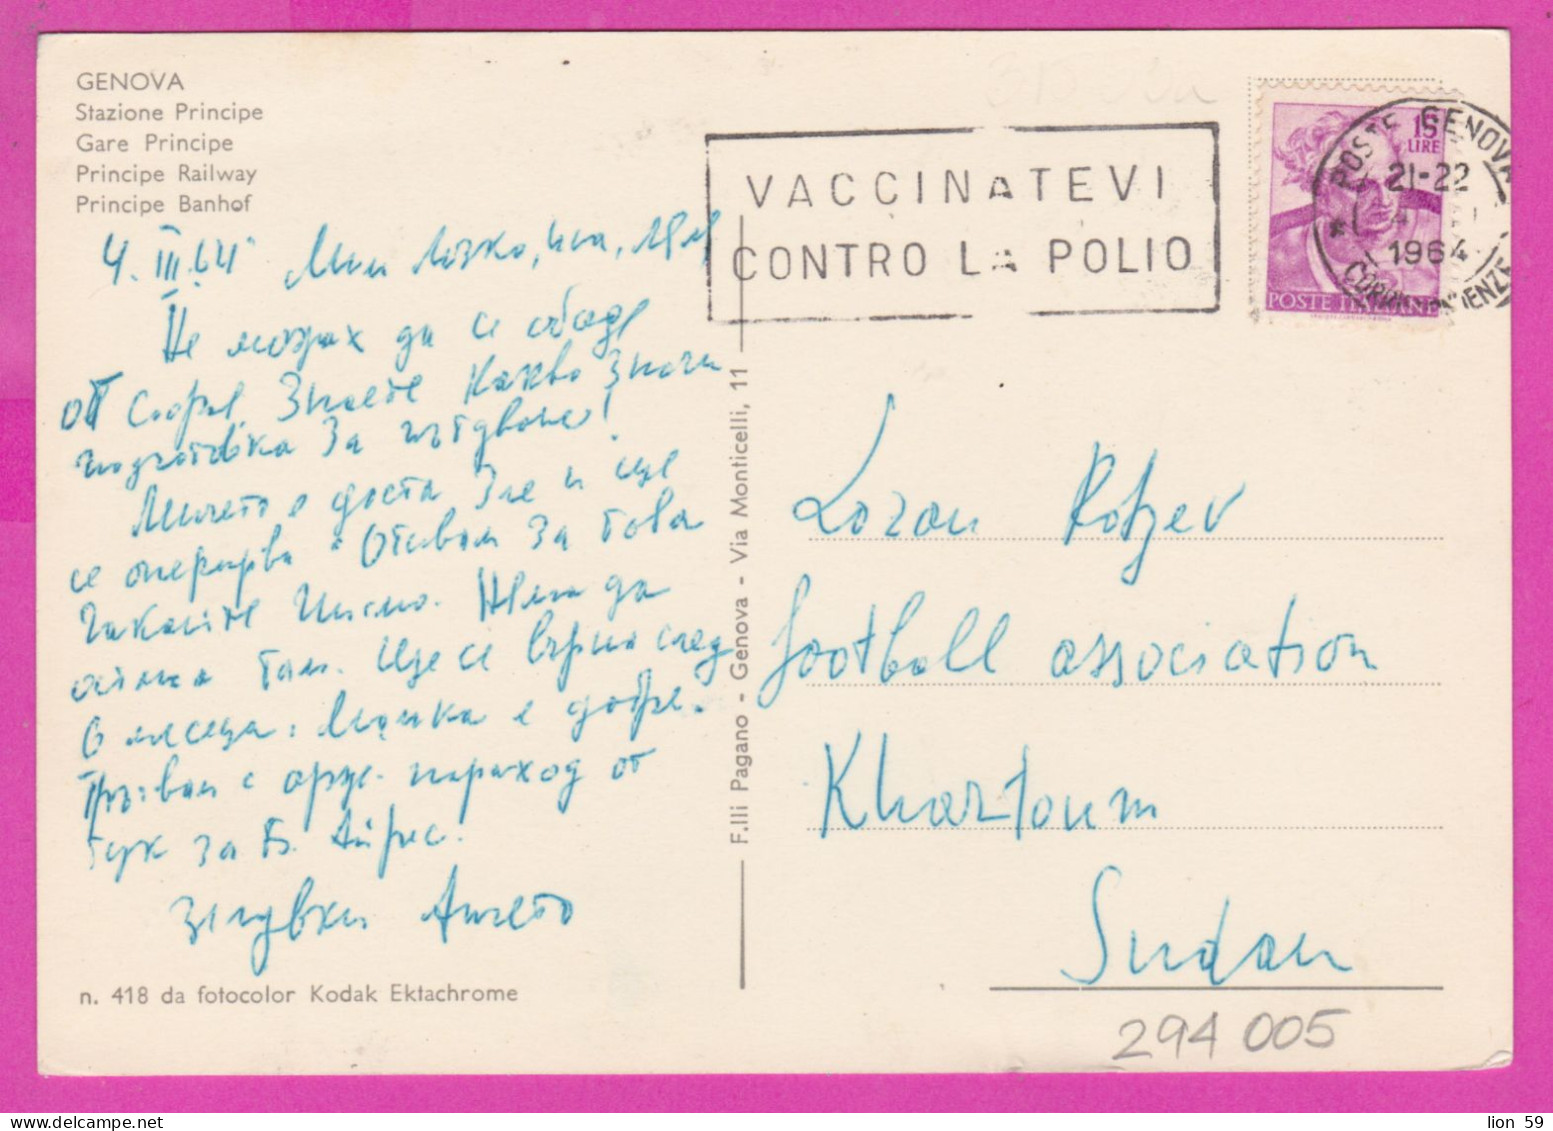 GENOVA
Stazione Principe
Gare Principe
Principe Railway
Principe Banhof
VACCINATEVI
CONTRO LA POLIO
15
LIRE
POSTE ITALIANE
POSTE GENOVA
21-22
1964
4.III.64 Мили Лозко,
Не можах да се обадя
от София. Знаете какво значи
подготовка за пътуване!
е доста зле и ще
се оперира. Отивам за това
чакайте писмо. Няма да
остана там. Ще се върна след
6 месеца. е добре.
с параход от
тук за Б. Айрес.
Lozan Kotzev
football association
Khartoum
Sudan
F.lli Pagano - Genova - Via Monticelli, 11
n. 418 da fotocolor Kodak Ektachrome
294 005
lion 59